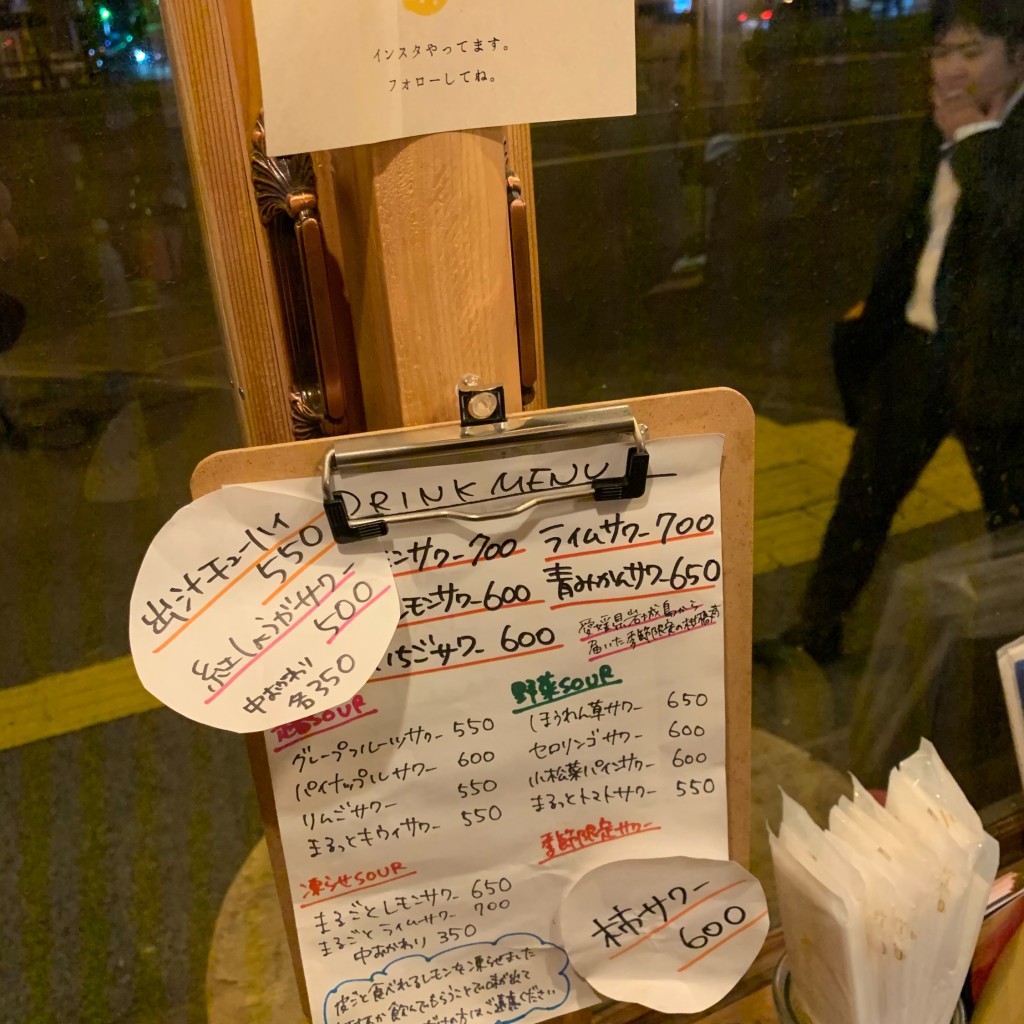 インスタやってます。
フォローしてね。
DRINK MENU
出汁チューハイ
550
紅しょうがサワー
500
中おかわり
各350
ンサワー 700
レモンサワー 600
いちごサワー 600
ライムサワー 700
青みかんサワー 650
愛媛県岩城島から
届いた季節限定の柑橘
SOUR
グレープフルーツサワー 550
パイナップルサワー 600
りんごサワー 550
まるっとキウイサワー 550
野菜SOUR
ほうれん草サワー 650
セロリンゴサワー 600
小松菜パインサワー 600
まるっとトマトサワー 550
凍らせSOUR
まるごとレモンサワー 650
まるごとライムサワー 700
中おかわり 350
皮ごと食べれるレモンを凍らせました
飲んでもらうことで味が出て
の方はご遠慮ください
季節限定サワー
柿サワー
600